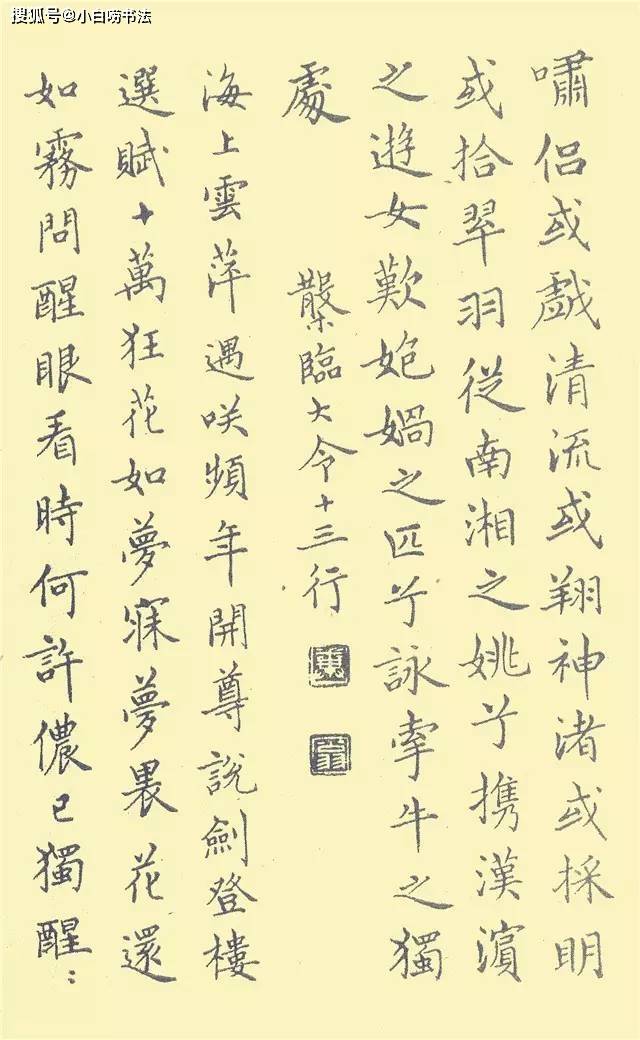 搜狐号@小白唠书法
嘯侣或戲清流或翔神渚或採明
或拾翠羽從南湘之姚兮携漢濱
之遊女歎匏媧之匹兮詠牽牛之獨
處
槃臨大令十三行
海上雲萍遇咲頻年開尊說劍登樓
選賦十萬狂花如夢寐夢裏花還
如霧問醒眼看時何許儂已獨醒: